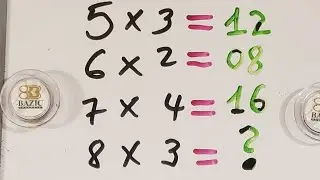 5 × 3 = 12
6 × 2 = 08
7 × 4 = 16
8 × 3 = ?
BAZIC